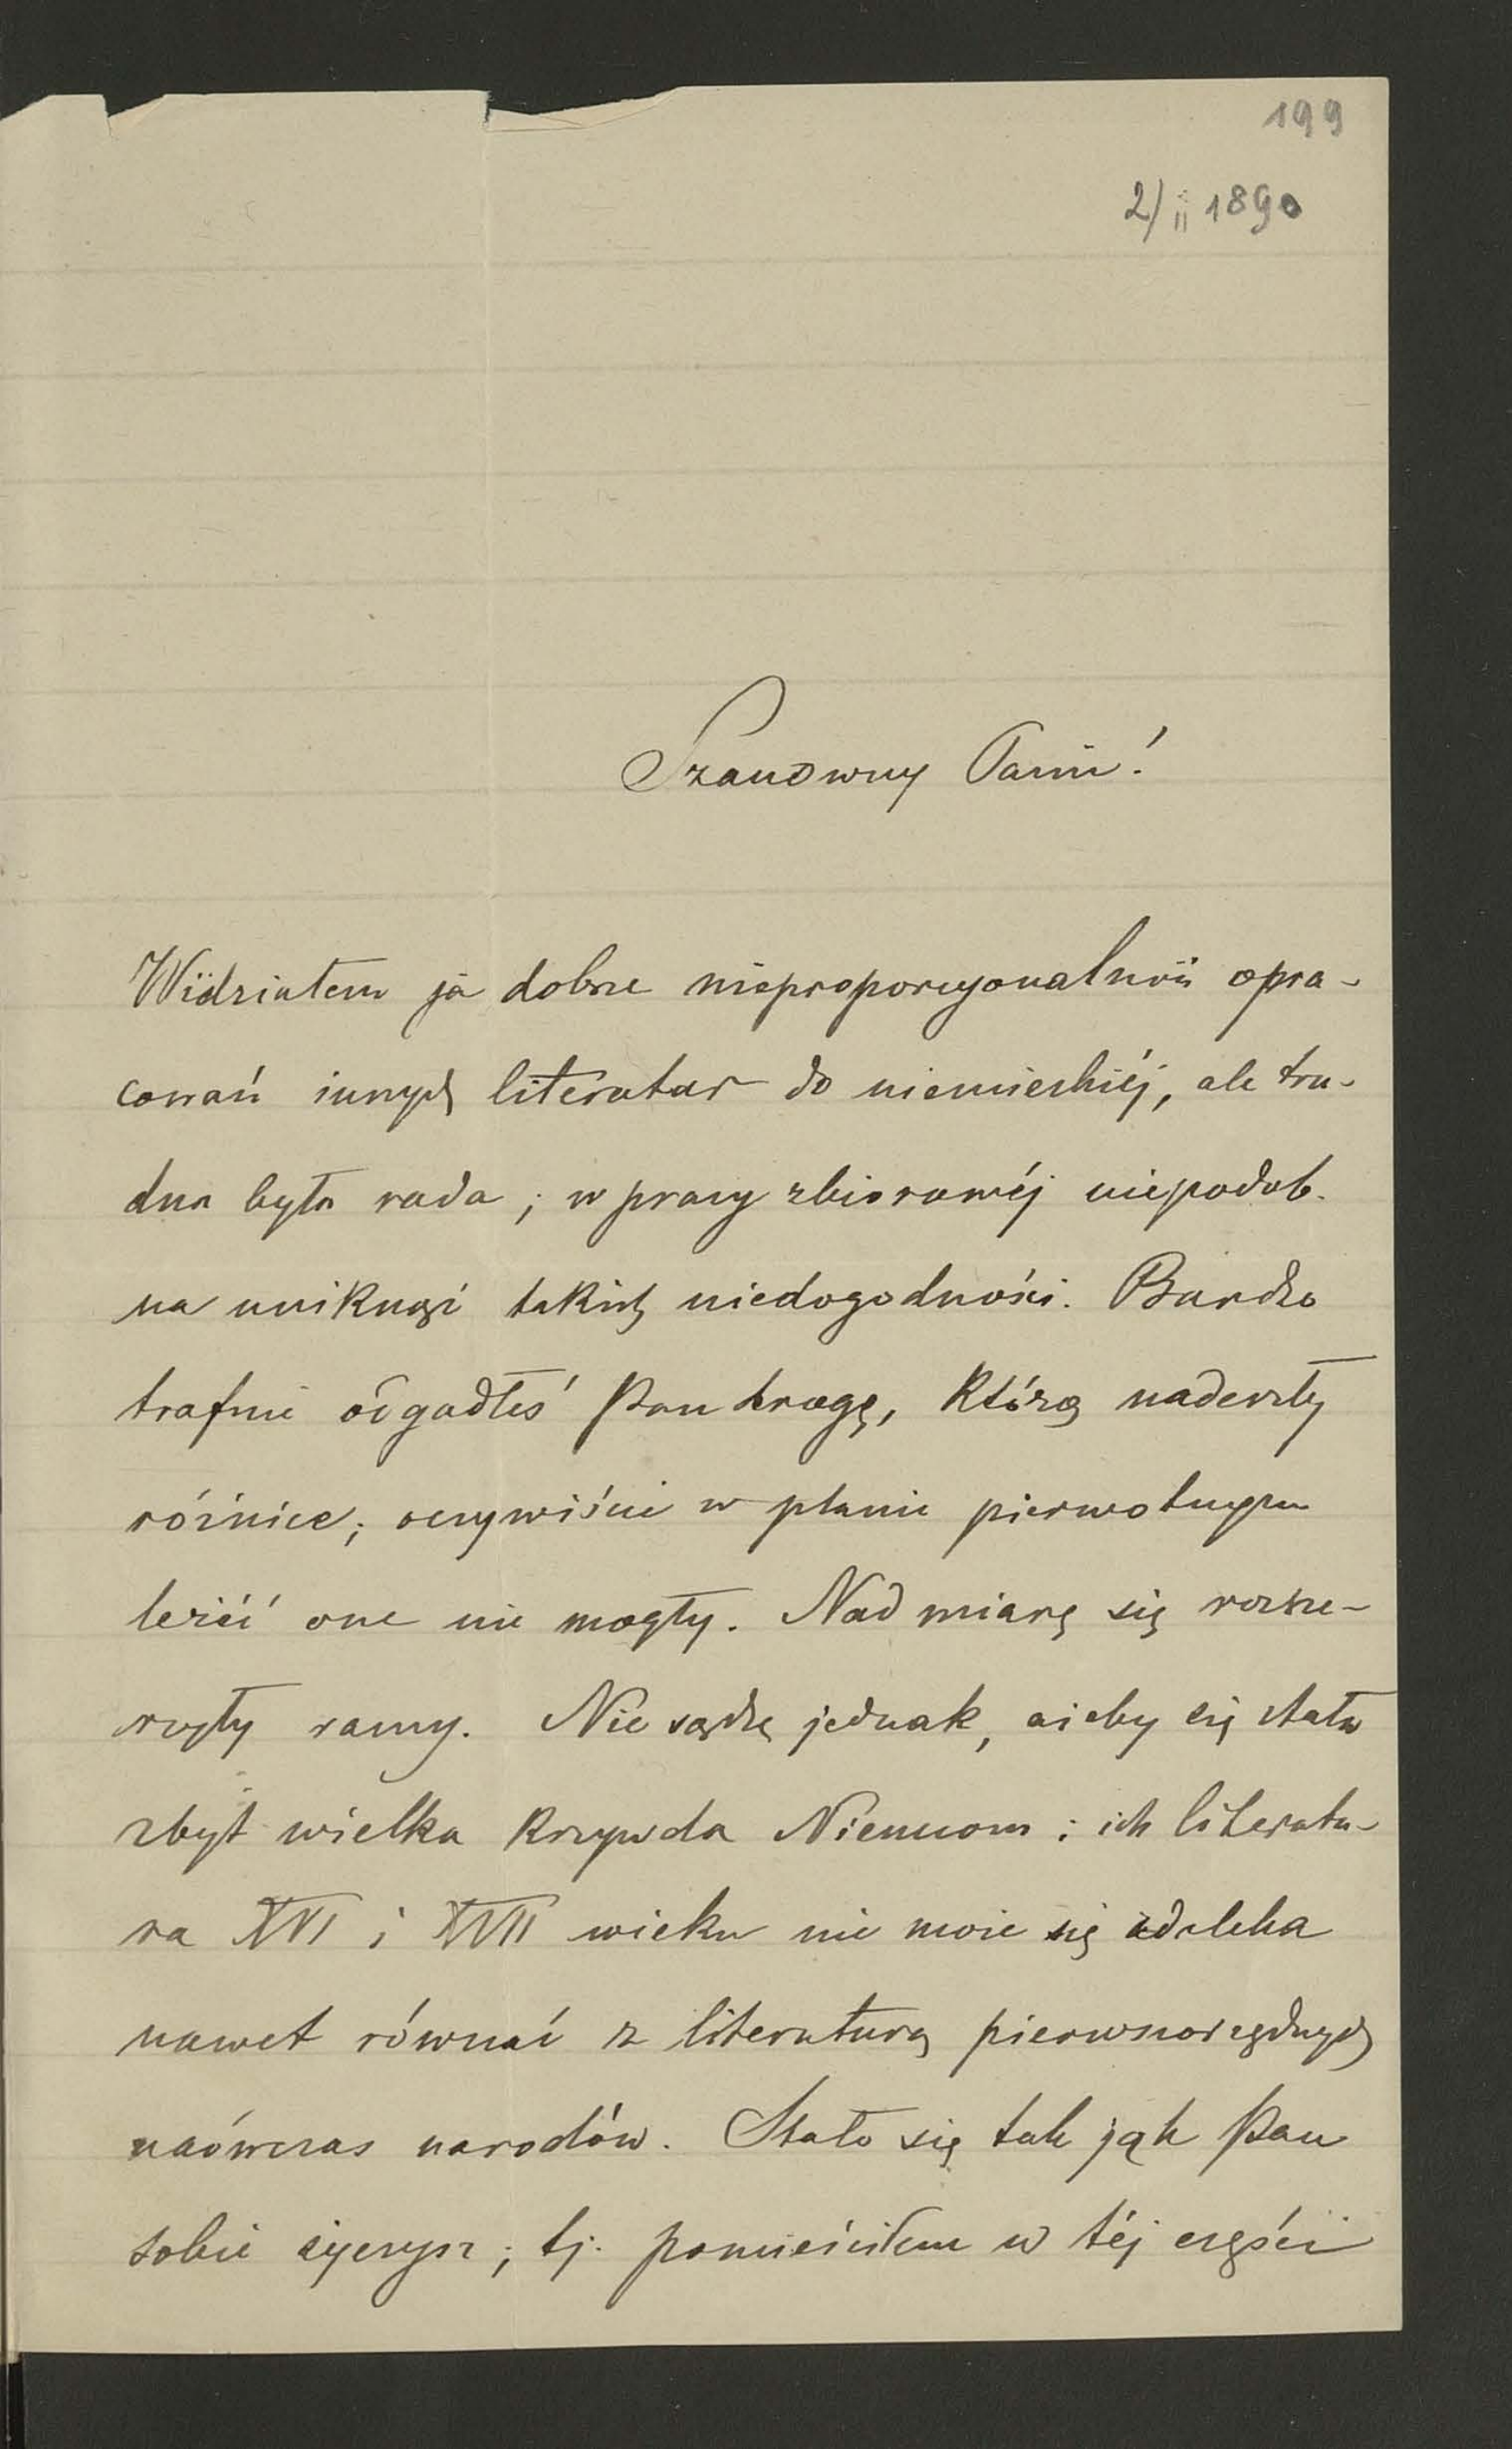 199
2/II 1890
Szanowny Panie!
Widziałem ja dobrze nieproporcyonalność opra-
cowań innych literatur do niemieckiéj, ale tru-
dna była rada; w pracy zbiorowéj niepodob-
na uniknąć takich niedogodności. Bardzo
trafnie odgadłeś Pan drogę, którą nadeszły
różnice; oczywiście w planie pierwotnym
leżéć one nie mogły. Nad miarę się rozsze-
rzyły ramy. Nie sądzę jednak, ażeby się stała
zbyt wielka krzywda Niemcom; ich literatu-
ra XVI i XVII wieku nie może się zdaleka
nawet równać z literaturą pierwszorzędnych
naówczas narodów. Stało się tak jak Pan
sobie życzysz; tj. pomieściłem w téj części